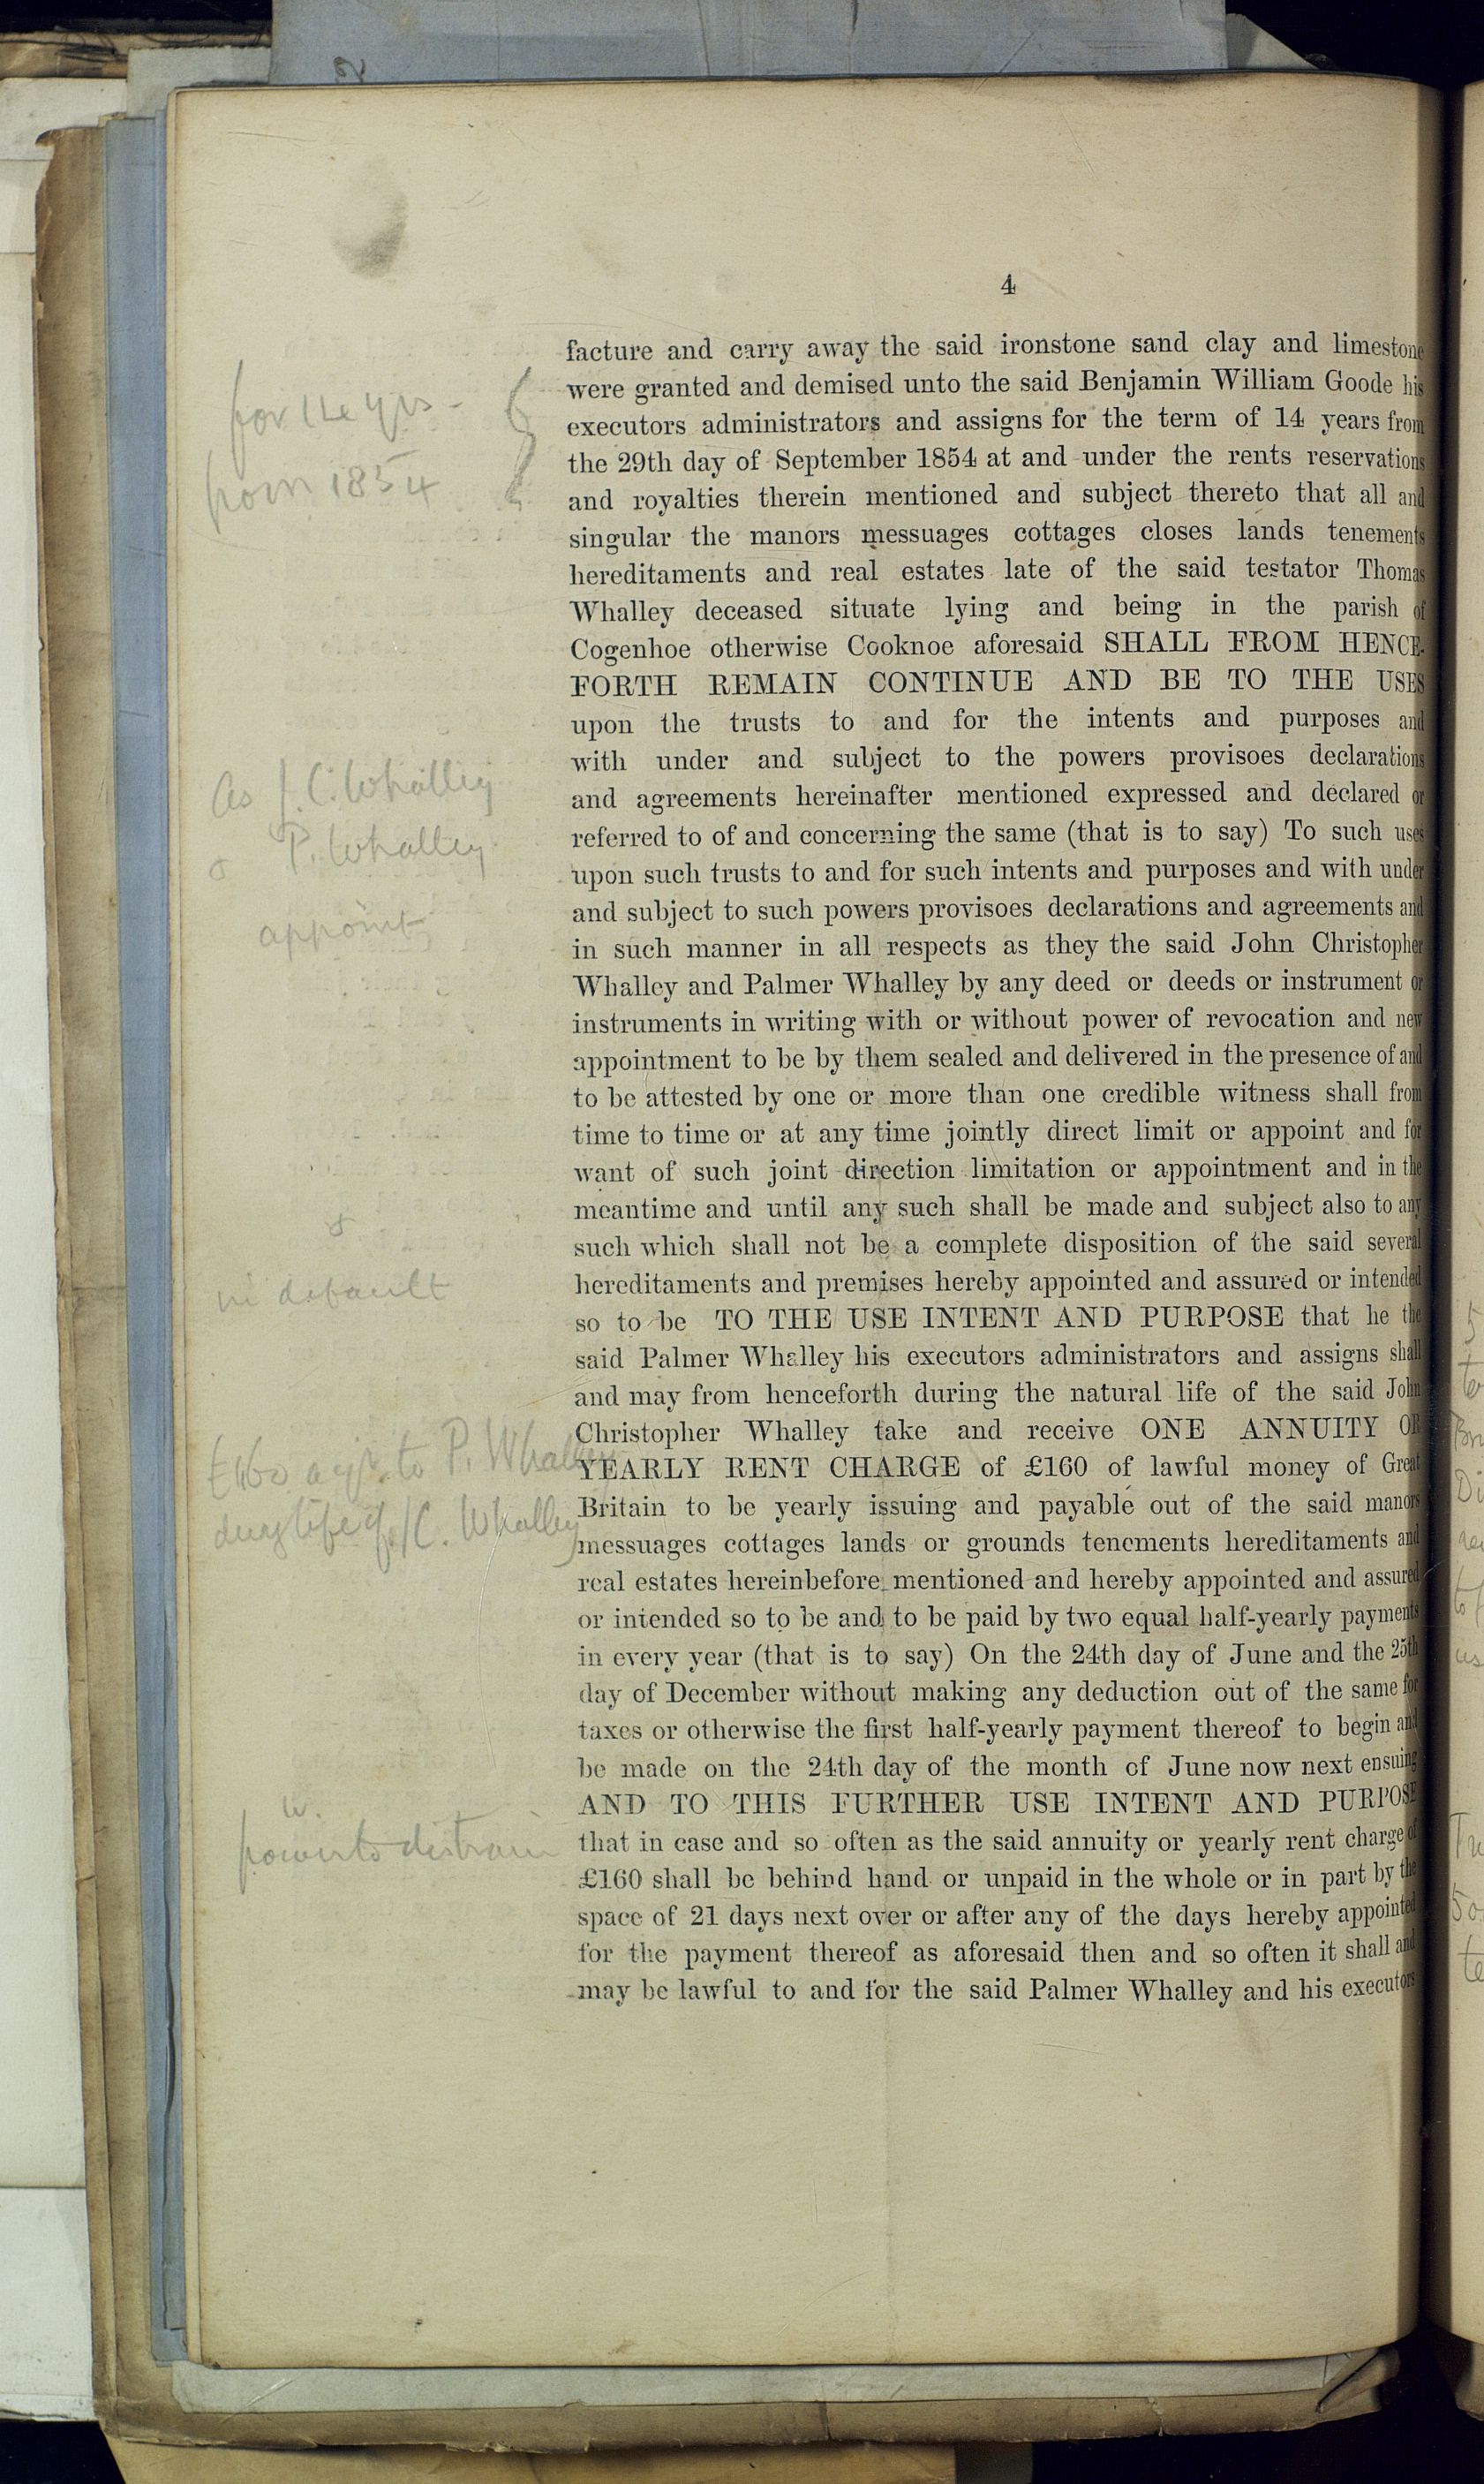 4
facture and carry away the said ironstone sand clay and limestone
were granted and demised unto the said Benjamin William Goode his
executors administrators and assigns for the term of 14 years from
the 29th day of September 1854 at and under the rents reservations
and royalties therein mentioned and subject thereto that all and
singular the manors messuages cottages closes lands tenements
hereditaments and real estates late of the said testator Thomas
Whalley deceased situate lying and being in the parish of
Cogenhoe otherwise Cooknoe aforesaid SHALL FROM HENCE-
FORTH REMAIN CONTINUE AND BE TO THE USES
upon the trusts to and for the intents and purposes and
with under and subject to the powers provisoes declarations
and agreements hereinafter mentioned expressed and declared or
referred to of and concerning the same (that is to say) To such uses
upon such trusts to and for such intents and purposes and with under
and subject to such powers provisoes declarations and agreements and
in such manner in all respects as they the said John Christopher
Whalley and Palmer Whalley by any deed or deeds or instrument or
instruments in writing with or without power of revocation and new
appointment to be by them sealed and delivered in the presence of and
to be attested by one or more than one credible witness shall from
time to time or at any time jointly direct limit or appoint and for
want of such joint direction limitation or appointment and in the
meantime and until any such shall be made and subject also to any
such which shall not be a complete disposition of the said several
hereditaments and premises hereby appointed and assured or intended
so to be TO THE USE INTENT AND PURPOSE that he the
said Palmer Whalley his executors administrators and assigns shall
and may from henceforth during the natural life of the said John
Christopher Whalley take and receive ONE ANNUITY OR
YEARLY RENT CHARGE of £160 of lawful money of Great
Britain to be yearly issuing and payable out of the said manors
messuages cottages lands or grounds tenements hereditaments and
real estates hereinbefore mentioned and hereby appointed and assured
or intended so to be and to be paid by two equal half-yearly payments
in every year (that is to say) On the 24th day of June and the 25th
day of December without making any deduction out of the same for
taxes or otherwise the first half-yearly payment thereof to begin and
be made on the 24th day of the month of June now next ensuing
AND TO THIS FURTHER USE INTENT AND PURPOSE
that in case and so often as the said annuity or yearly rent charge of
£160 shall be behind hand or unpaid in the whole or in part by the
space of 21 days next over or after any of the days hereby appointed
for the payment thereof as aforesaid then and so often it shall and
may be lawful to and for the said Palmer Whalley and his executors
for 14 yrs -
from 1854
As J. C. Whalley
& P. Whalley
appoint
&
in default
£160 a yr. to P. Whalley
life of J C. Whalley
w.
power to distrain